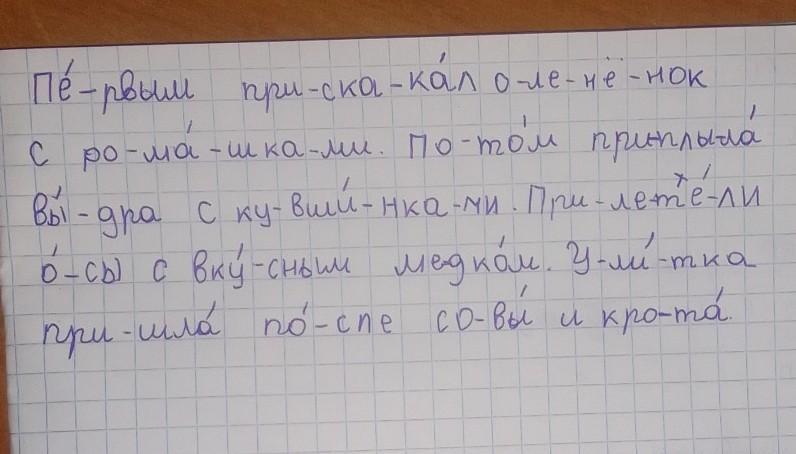 Пе́-рвым при-ска-ка́л о-ле-нё-нок
с ро-ма́-шка-ми. По-то́м приплыла́
вы́-дра с ку-вши́-нка-ми. При-лете́-ли
о́-сы с вку́-сным медко́м. У-ли́-тка
при-шла́ по́-сле со-вы́ и кро-та́.